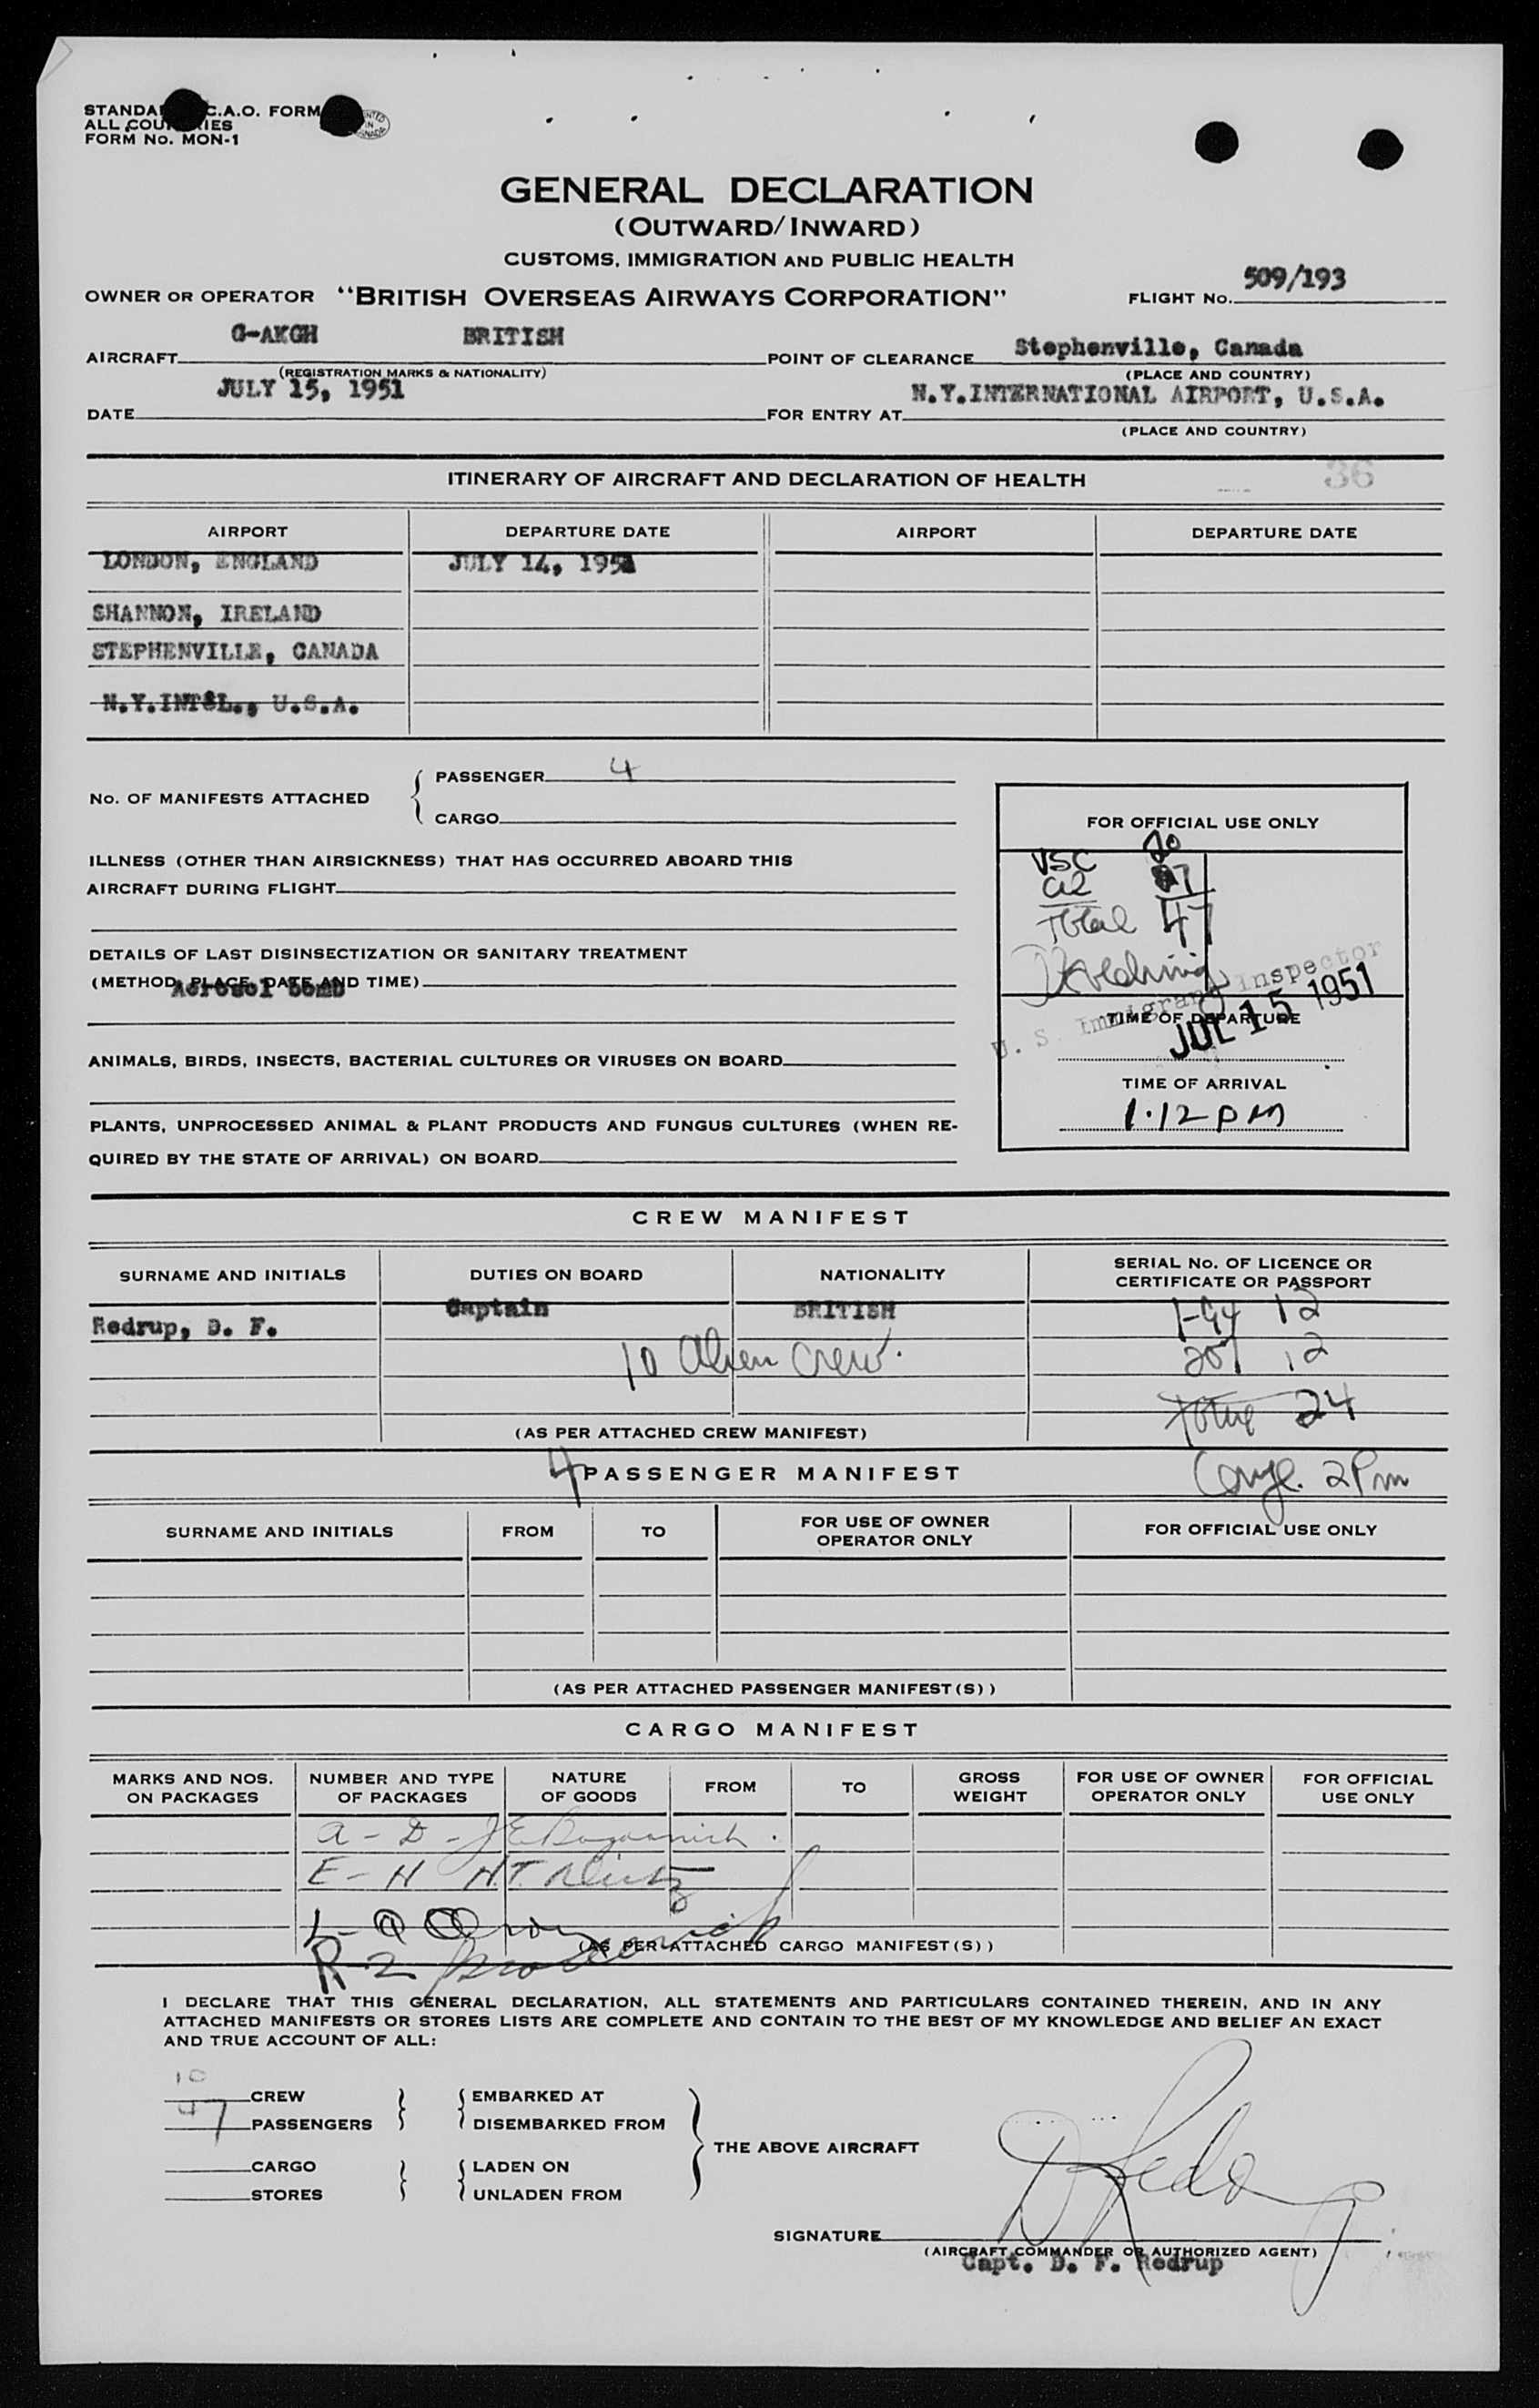 STANDA C.A.O. FORM
ALL COU IES
FORM No. MON-1
GENERAL DECLARATION
(OUTWARD/INWARD)
CUSTOMS, IMMIGRATION AND PUBLIC HEALTH
OWNER OR OPERATOR "BRITISH OVERSEAS AIRWAYS CORPORATION" FLIGHT No. 509/193
AIRCRAFT G-AKGH BRITISH POINT OF CLEARANCE Stephenville, Canada
(REGISTRATION MARKS & NATIONALITY) (PLACE AND COUNTRY)
DATE JULY 15, 1951 FOR ENTRY AT N.Y.INTERNATIONAL AIRPORT, U.S.A.
(PLACE AND COUNTRY)
ITINERARY OF AIRCRAFT AND DECLARATION OF HEALTH 36
AIRPORT DEPARTURE DATE AIRPORT DEPARTURE DATE
LONDON, ENGLAND JULY 14, 1951
SHANNON, IRELAND
STEPHENVILLE, CANADA
N.Y.INT'L., U.S.A.
No. OF MANIFESTS ATTACHED
PASSENGER 4
CARGO
ILLNESS (OTHER THAN AIRSICKNESS) THAT HAS OCCURRED ABOARD THIS
AIRCRAFT DURING FLIGHT
DETAILS OF LAST DISINSECTIZATION OR SANITARY TREATMENT
(METHOD, PLACE, DATE AND TIME)
Aerosol bomb
ANIMALS, BIRDS, INSECTS, BACTERIAL CULTURES OR VIRUSES ON BOARD
PLANTS, UNPROCESSED ANIMAL & PLANT PRODUCTS AND FUNGUS CULTURES (WHEN RE-
QUIRED BY THE STATE OF ARRIVAL) ON BOARD
FOR OFFICIAL USE ONLY
USC 20
27
Total 47
U. S. Immigrant Inspector
JUL 15 1951
TIME OF DEPARTURE
TIME OF ARRIVAL
1.12 PM
CREW MANIFEST
SURNAME AND INITIALS DUTIES ON BOARD NATIONALITY SERIAL No. OF LICENCE OR
CERTIFICATE OR PASSPORT
Redrup, D. F. Captain BRITISH 12
10 Alien Crew. 12
24
(AS PER ATTACHED CREW MANIFEST)
4 PASSENGER MANIFEST 2 Pm
SURNAME AND INITIALS FROM TO FOR USE OF OWNER
OPERATOR ONLY FOR OFFICIAL USE ONLY
(AS PER ATTACHED PASSENGER MANIFEST(S))
CARGO MANIFEST
MARKS AND NOS.
ON PACKAGES NUMBER AND TYPE
OF PACKAGES NATURE
OF GOODS FROM TO GROSS
WEIGHT FOR USE OF OWNER
OPERATOR ONLY FOR OFFICIAL
USE ONLY
A - D -
E - H
L - Q
R - Z
(AS PER ATTACHED CARGO MANIFEST(S))
I DECLARE THAT THIS GENERAL DECLARATION, ALL STATEMENTS AND PARTICULARS CONTAINED THEREIN, AND IN ANY
ATTACHED MANIFESTS OR STORES LISTS ARE COMPLETE AND CONTAIN TO THE BEST OF MY KNOWLEDGE AND BELIEF AN EXACT
AND TRUE ACCOUNT OF ALL:
10 CREW EMBARKED AT
47 PASSENGERS DISEMBARKED FROM
THE ABOVE AIRCRAFT
CARGO LADEN ON
STORES UNLADEN FROM
SIGNATURE
(AIRCRAFT COMMANDER OR AUTHORIZED AGENT)
Capt. D. F. Redrup